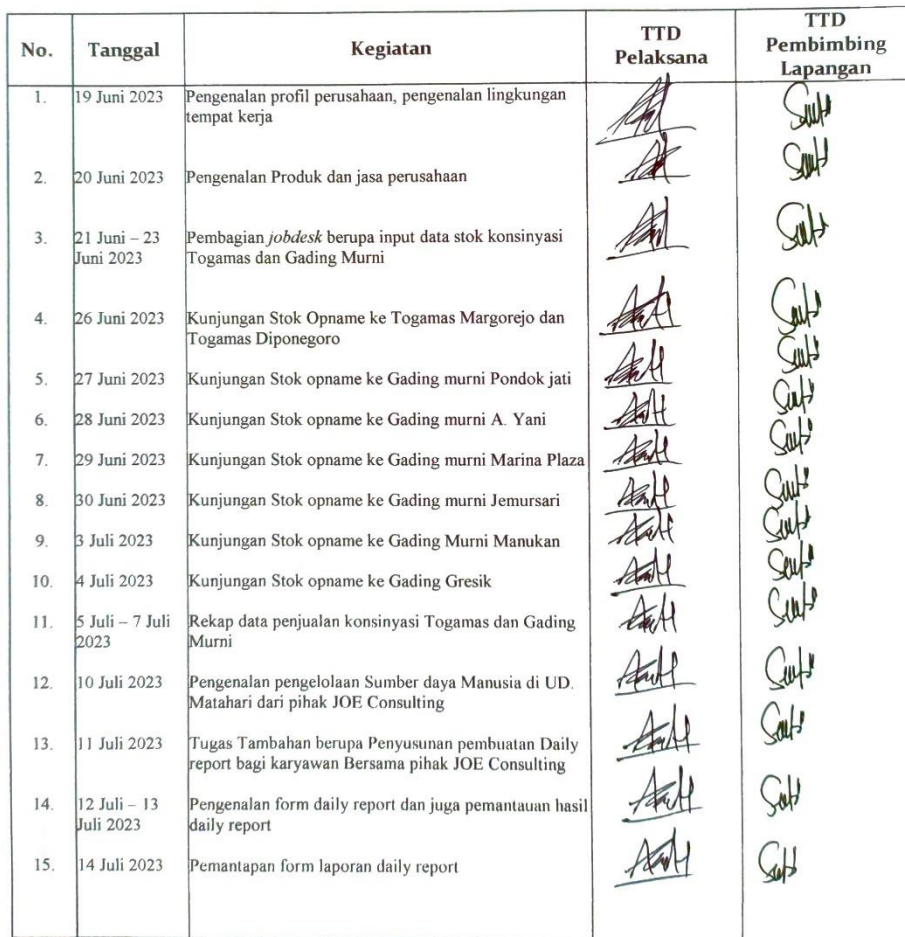 No. Tanggal Kegiatan TTD Pelaksana TTD Pembimbing Lapangan
1. 19 Juni 2023 Pengenalan profil perusahaan, pengenalan lingkungan
tempat kerja
2. 20 Juni 2023 Pengenalan Produk dan jasa perusahaan
3. 21 Juni – 23 Pembagian jobdesk berupa input data stok konsinyasi
Juni 2023 Togamas dan Gading Murni
4. 26 Juni 2023 Kunjungan Stok Opname ke Togamas Margorejo dan
Togamas Diponegoro
5. 27 Juni 2023 Kunjungan Stok opname ke Gading murni Pondok jati
6. 28 Juni 2023 Kunjungan Stok opname ke Gading murni A. Yani
7. 29 Juni 2023 Kunjungan Stok opname ke Gading murni Marina Plaza
8. 30 Juni 2023 Kunjungan Stok opname ke Gading murni Jemursari
9. 3 Juli 2023 Kunjungan Stok opname ke Gading Murni Manukan
10. 4 Juli 2023 Kunjungan Stok opname ke Gading Gresik
11. 5 Juli – 7 Juli Rekap data penjualan konsinyasi Togamas dan Gading
2023 Murni
12. 10 Juli 2023 Pengenalan pengelolaan Sumber daya Manusia di UD.
Matahari dari pihak JOE Consulting
13. 11 Juli 2023 Tugas Tambahan berupa Penyusunan pembuatan Daily
report bagi karyawan Bersama pihak JOE Consulting
14. 12 Juli – 13 Pengenalan form daily report dan juga pemantauan hasil
Juli 2023 daily report
15. 14 Juli 2023 Pemantapan form laporan daily report